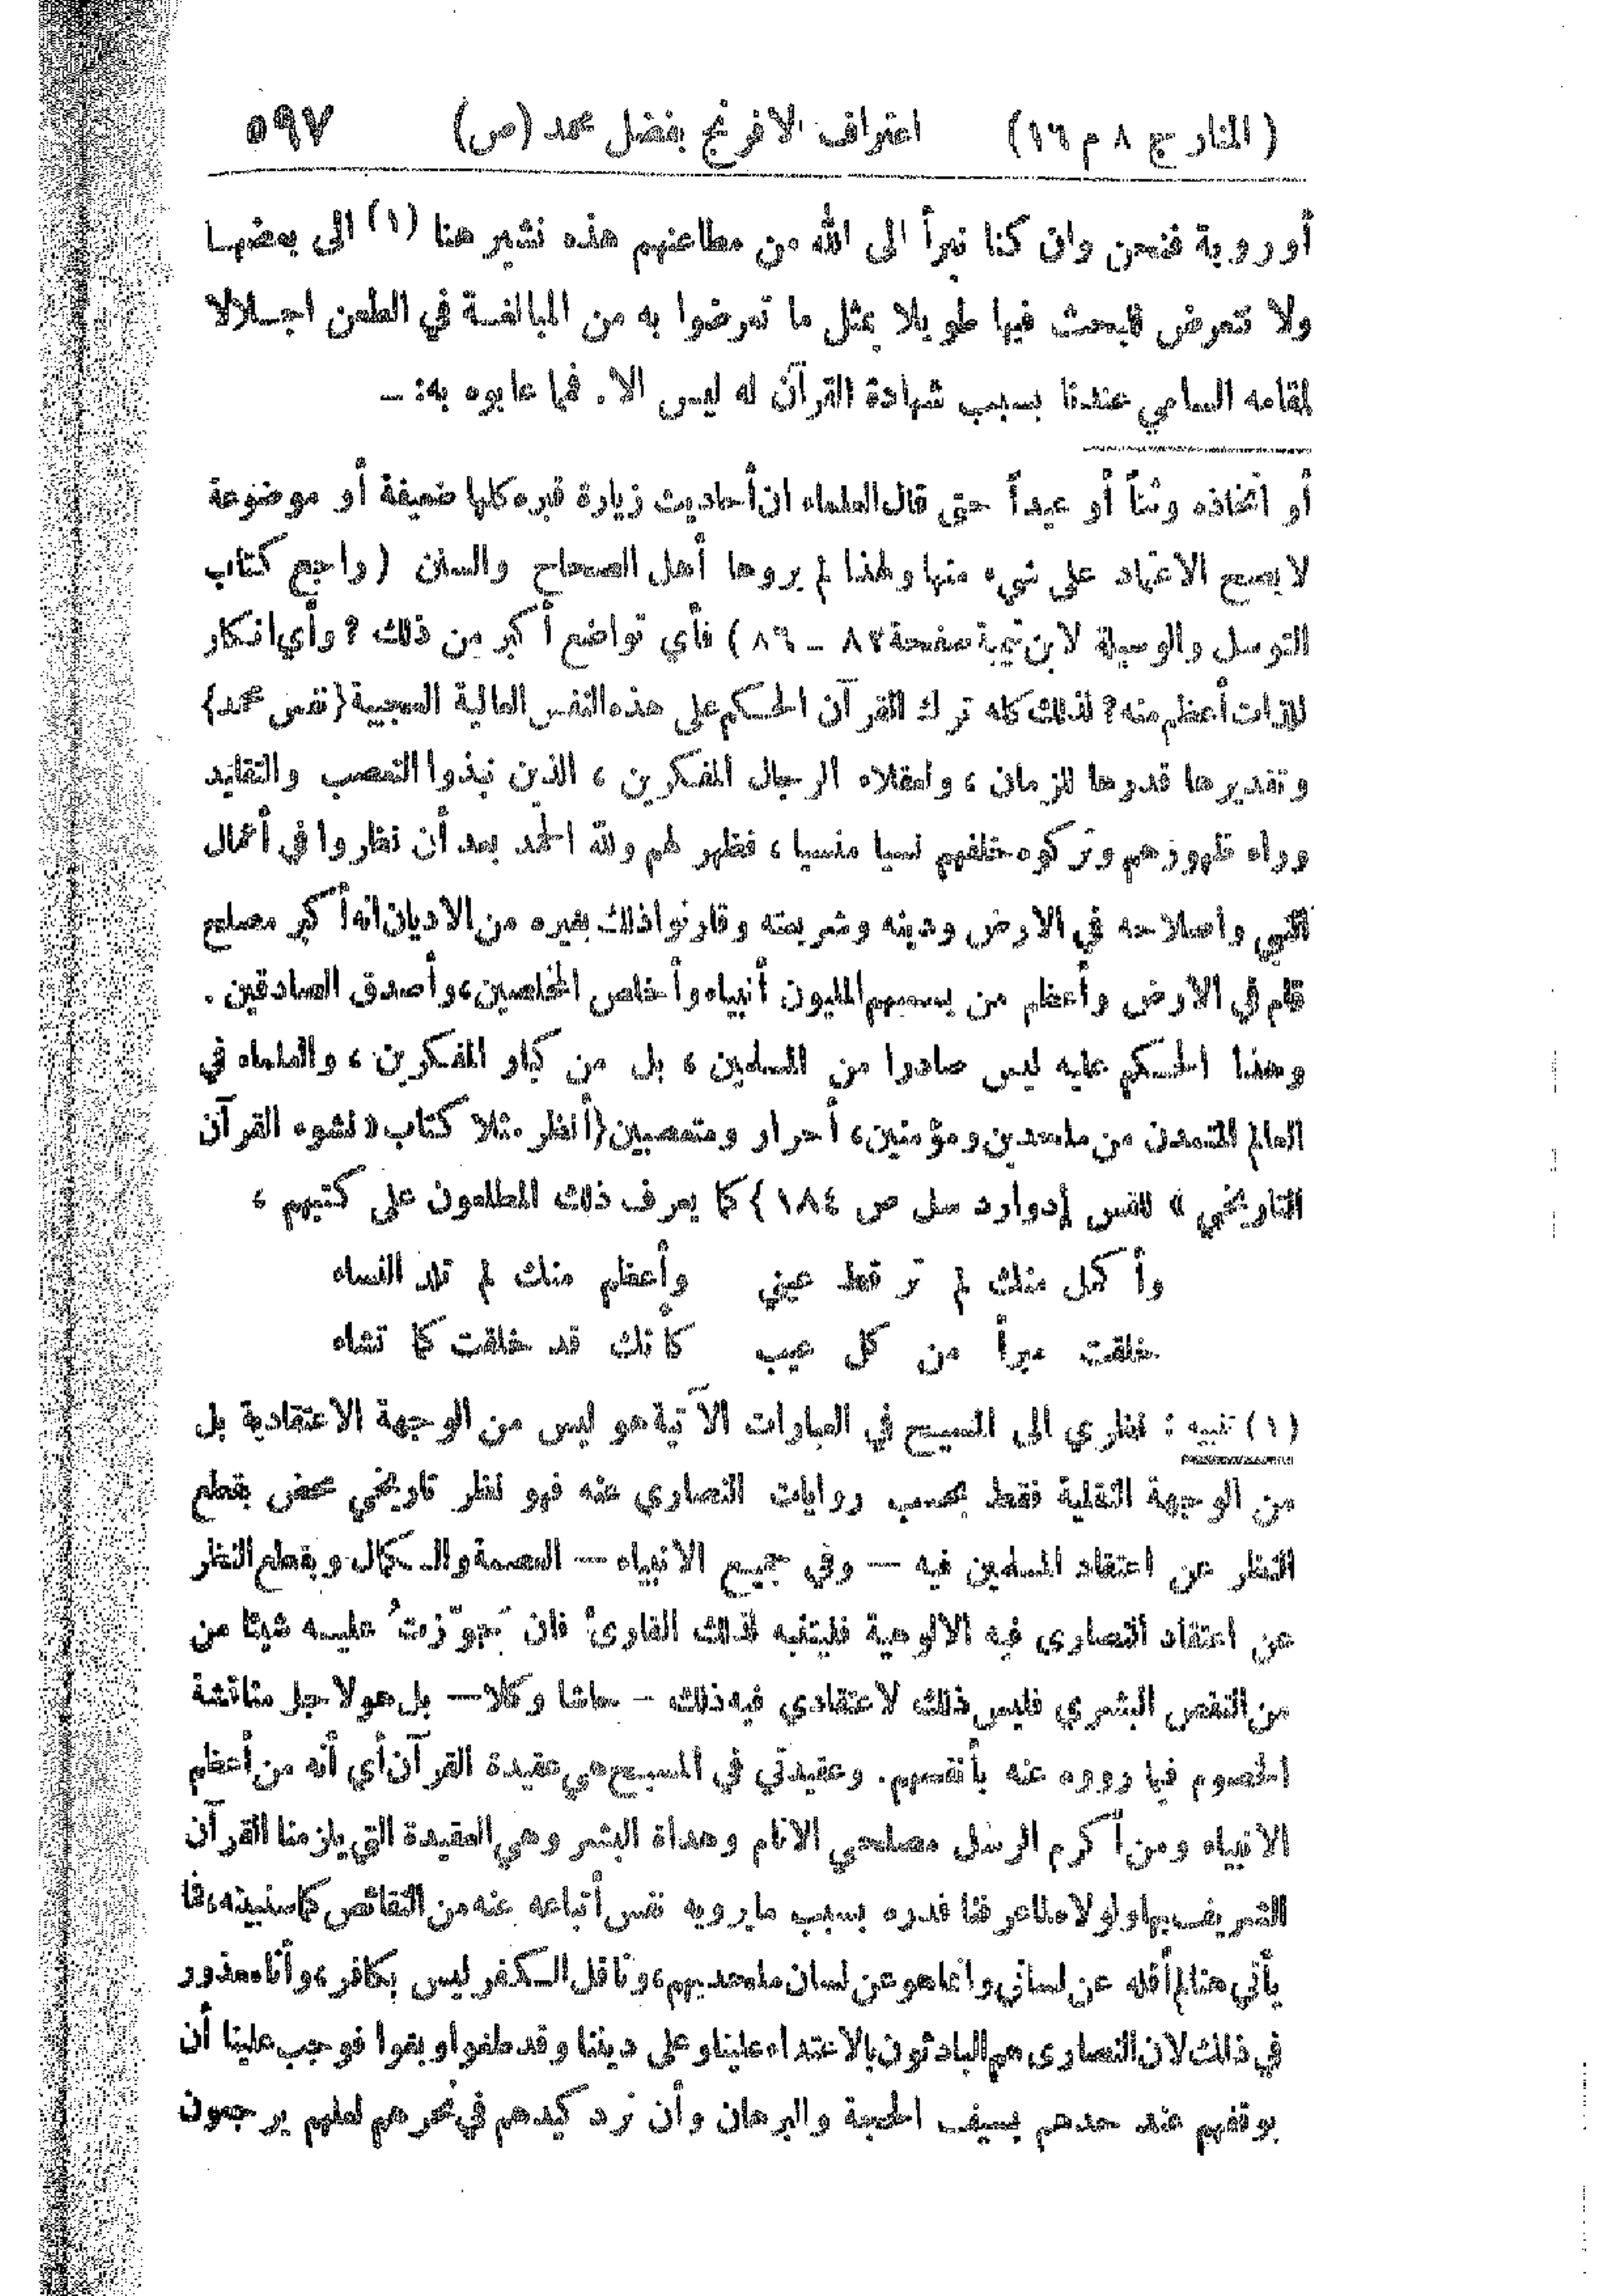 (المنار ج ٨ م ١٦) اعتراف الافرنج بفضل محمد (ص) ٥٩٧
أوروبة فنحن وان كنا نبرأ الى الله من مطاعنهم هذه نشير هنا (١) الى بعضها
ولا نتعرض للبحث فيها طويلا بمثل ما تعرضوا به من المبالغة في الطعن اجلالا
لمقامه السامي عندنا بسبب شهادة القرآن له ليس الا. فما عابوه به: –
أو اتخاذه وثناً أو عيداً حتى قال العلماء ان أحاديث زيارة قبره كلها ضعيفة أو موضوعة
لا يصح الاعتماد على شيء منها ولهذا لم يروها أهل الصحاح والسنن (راجع كتاب
التوسل والوسيلة لابن تيمية صفحة ٨٧ – ٨٦) فأي تواضع أكبر من ذلك ؟ وأي انكار
للذات أعظم منه ؟ لذلك كله ترك القرآن الحكم على هذه النفس العالية العجيبة (نفس محمد)
وتقديرها قدرها للزمان ، ولعقلاء الرجال المفكرين ، الذين نبذوا التعصب والتقليد
وراء ظهورهم وتركوه خلفهم نسيا منسيا ، فظهر لهم ولله الحمد بعد أن نظروا في أعمال
النبي واصلاحه في الارض ودينه وشريعته وقارنوا ذلك بغيره من الاديان انه أكبر مصلح
قام في الارض وأعظم من يسميهم المليون أنبياء وأخلص المخلصين ، وأصدق الصادقين .
وهذا الحكم عليه ليس صادرا من المسلمين ، بل من كبار المفكرين ، والعلماء في
العالم المتمدن من ملحدين ومؤمنين ، أحرار ومتعصبين (أنظر مثلا كتاب « نشوء القرآن
التاريخي » للقس إدوارد سل ص ١٨٤) كما يعرف ذلك المطلعون على كتبهم ،
وأكمل منك لم تر قط عيني وأعظم منك لم تلد النساء
خلقت مبرأ من كل عيب كأنك قد خلقت كما تشاء
(١) تنبيه : نظري الى المسيح في العبارات الآتية هو ليس من الوجهة الاعتقادية بل
من الوجهة النقلية فقط بحسب روايات النصارى عنه فهو نظر تاريخي محض بقطع
النظر عن اعتقاد المسلمين فيه — وفي جميع الانبياء — العصمة والكمال وبقطع النظر
عن اعتقاد النصارى فيه الالوهية فليتنبه لذلك القارئ فان تجوّزتُ عليه شيئا من
من النقص البشري فليس ذلك لاعتقادي فيه ذلك – حاشا وكلا— بل هو لاجل مناقشة
الخصوم فيما رووه عنه بأنفسهم. وعقيدتي في المسيح هي عقيدة القرآن أي أنه من أعظم
الانبياء ومن أكرم الرسل مصلحي الانام وهداة البشر وهي العقيدة التي يلزمنا القرآن
الشريف بها ولولاه لما عرفنا قدره بسبب ما يرويه نفس أتباعه عنه من النقائص كما سنبينه ، فما
يأتي هنا لم أقله عن لساني وانما هو عن لسان ملحديهم ، وناقل الكفر ليس بكافر ، وأنا معذور
في ذلك لان النصارى هم البادئون بالاعتداء علينا وعلى ديننا وقد طغوا وبغوا فوجب علينا أن
نوقفهم عند حدهم بسيف الحجة والبرهان وأن نرد كيدهم في نحرهم لعلهم يرجعون